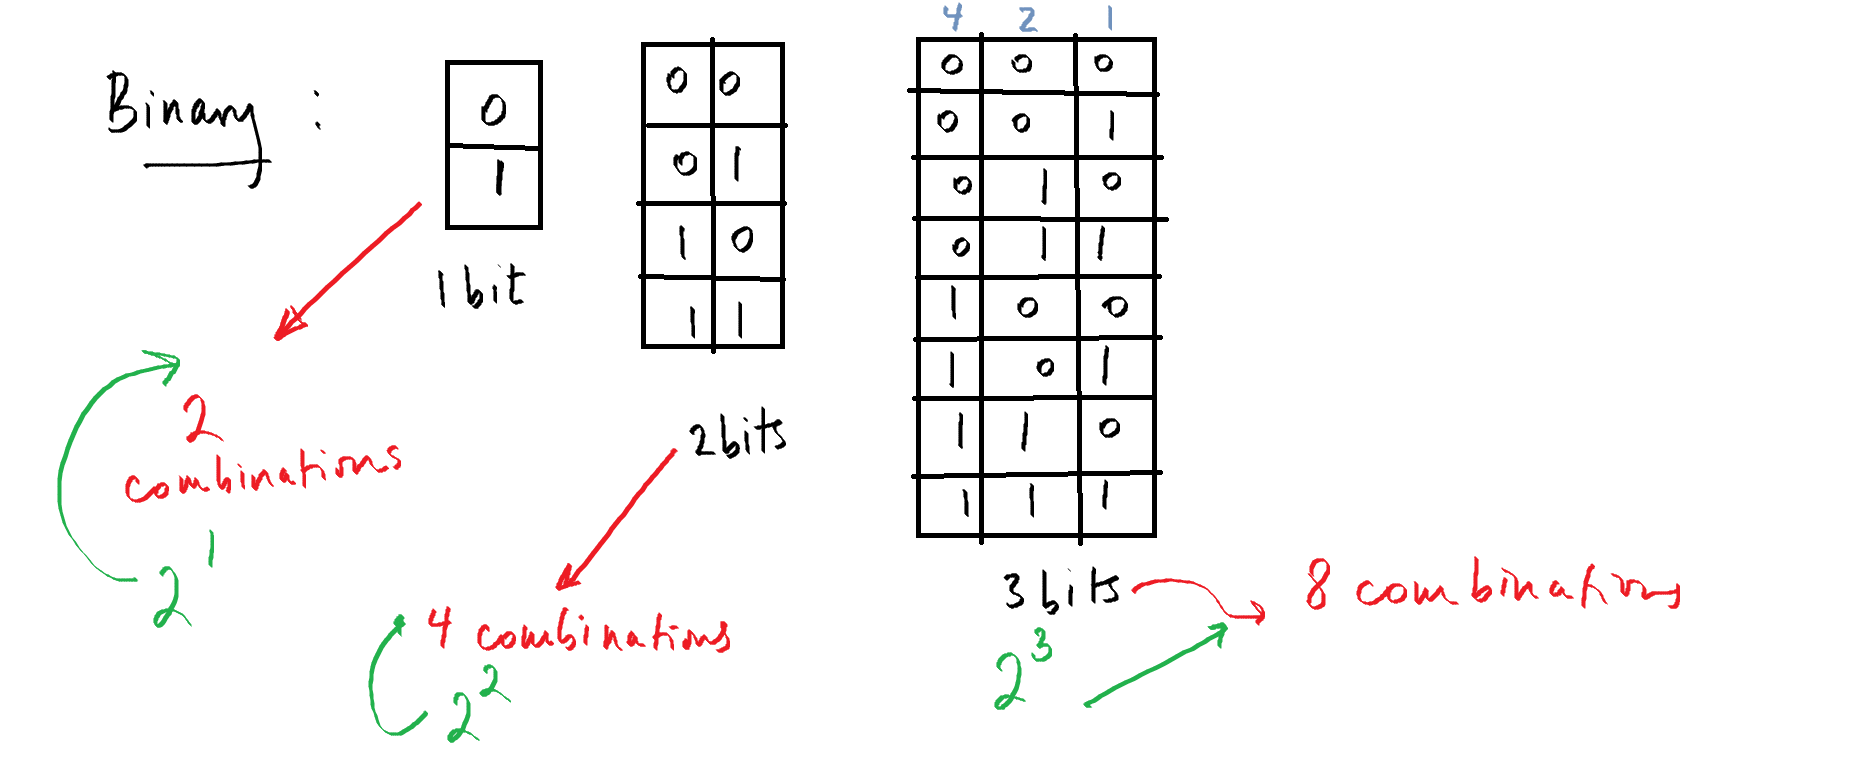 Binary :
0
1
1 bit
2
combinations
2^1
0 0
0 1
1 0
1 1
2 bits
4 combinations
2^2
4 2 1
0 0 0
0 0 1
0 1 0
0 1 1
1 0 0
1 0 1
1 1 0
1 1 1
3 bits
8 combinations
2^3